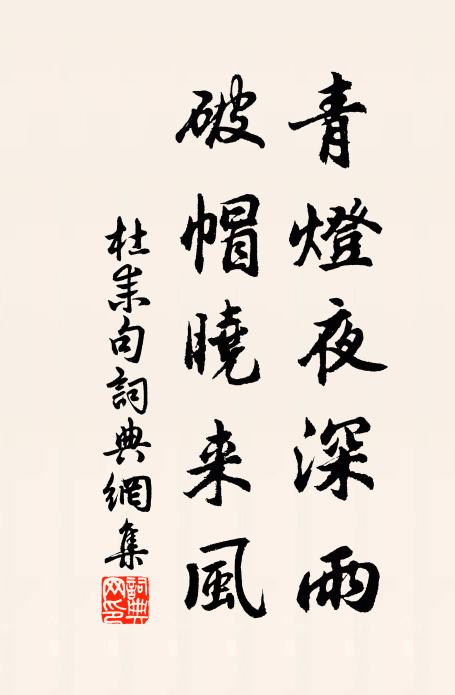 青燈夜深雨
破帽曉来風
杜耒句詞典網集